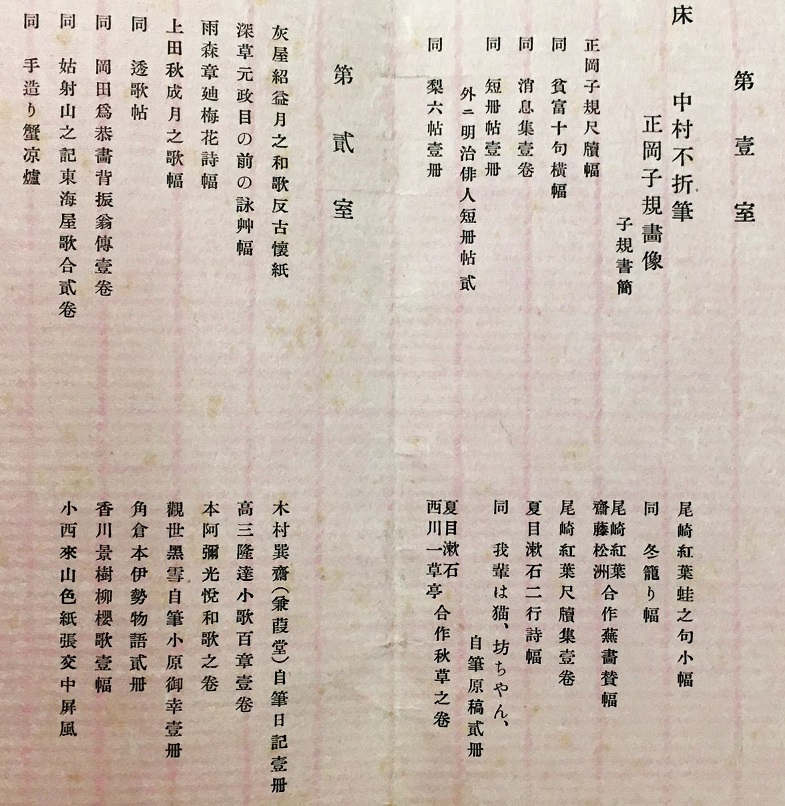 第壹室
床　中村不折筆
正岡子規畫像
子規書簡
正岡子規尺牘幅
同　貧富十句橫幅
同　消息集壹卷
同　短册帖壹册
外ニ明治俳人短册帖貳
同　梨六帖壹册
尾崎紅葉蛙之句小幅
同　冬籠り幅
尾崎紅葉
齋藤松洲
合作蕪畵賛幅
尾崎紅葉尺牘集壹卷
夏目漱石二行詩幅
同　我輩は猫、坊ちやん、
自筆原稿貳册
夏目漱石
西川一草亭
合作秋草之卷
第貳室
灰屋紹益月之和歌反古懷紙
深草元政目の前の詠艸幅
雨森章廸梅花詩幅
上田秋成月之歌幅
同　透歌帖
同　岡田爲恭畵背振翁傳壹卷
同　姑射山之記東海屋歌合貳卷
同　手造り蟹凉爐
木村巽齋(兼葭堂)自筆日記壹册
高三隆達小歌百章壹卷
本阿彌光悅和歌之卷
觀世黑雪自筆小原御幸壹册
角倉本伊勢物語貳册
香川景樹柳櫻歌壹幅
小西來山色紙張交中屏風